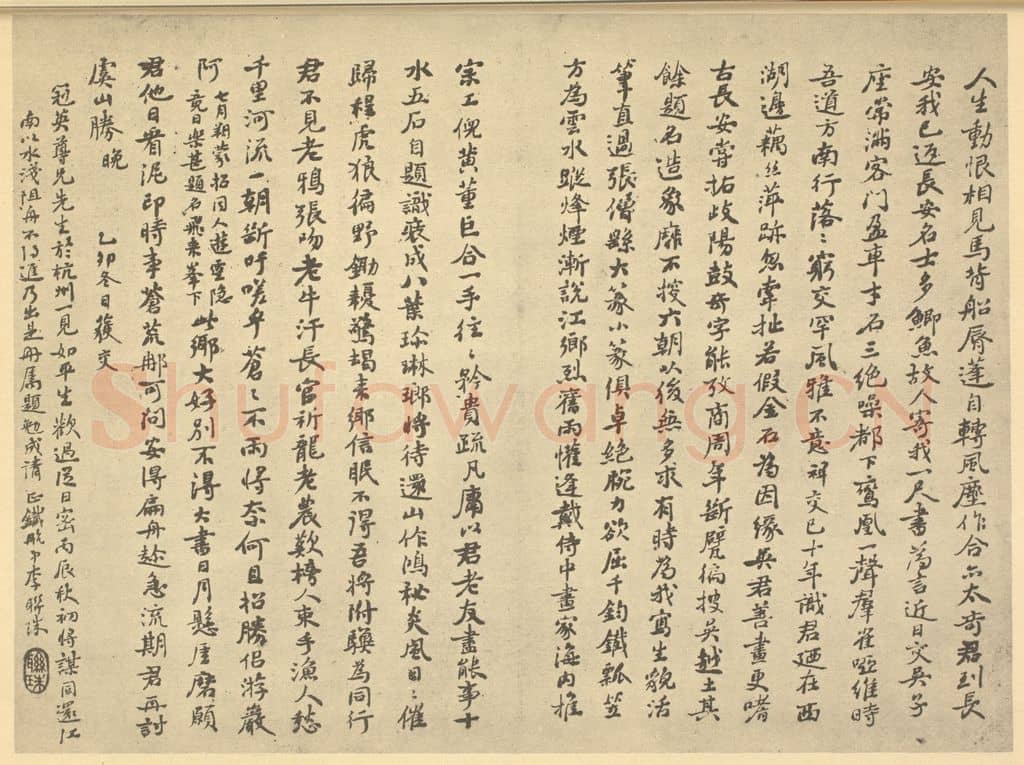 人生動恨相見馬背船脣蓬自轉風塵作合亦太奇君到長
安我已返長安名士多鯽魚故人寄我一尺書為言近日交吳子
座常滿客門盈車才名三絕噪都下鸞鳳一聲羣雀啞維時
吾道方南行落〻窮交罕風雅不意神交已十年識君迺在西
湖邊藕絲萍跡忽牽扯若假金石為因緣吳君善畫更嗜
古長安嘗拓歧陽鼓奇字能攷商周年斷甓徧搜吳越土其
餘題名造象靡不搜六朝以後無多求有時為我寫生貌活
筆直過張僧繇大篆小篆俱卓絕腕力欲屈千鈞鐵瓢笠
方為雲水蹤烽煙漸說江鄉烈舊雨懽逢戴侍中畫家海內推
宗工倪黃董巨合一手往〻矜貴疏凡庸以君老友盡能事十
水五石自題識裝成八葉珍琳瑯將待還山作鴻秘炎風日〻催
歸程虎狼徧野鋤耰驚朅來鄉信眠不得吾將附驥為同行
君不見老鴉張吻老牛汗長官祈龍老農歎榜人束手漁人愁
千里河流一朝斷吁嗟乎蒼〻不雨得奈何且招勝侶游巖
阿七月朔蒙招同人遊靈隐竟日樂甚題名飛來峯下此鄉大好別不得大書日月懸厓磨願
君他日看泥印時事蒼茫那可問安得扁舟趁急流期君再討
虞山勝 晚 乙卯冬日穫交
冠英尊兄先生於杭州一見如平生歡過從日密丙辰秋初將謀同還江
南以水淺阻舟不得進乃出是冊屬題勉成請正鐵 弟李聯珠
聯珠
Shufawang.CN